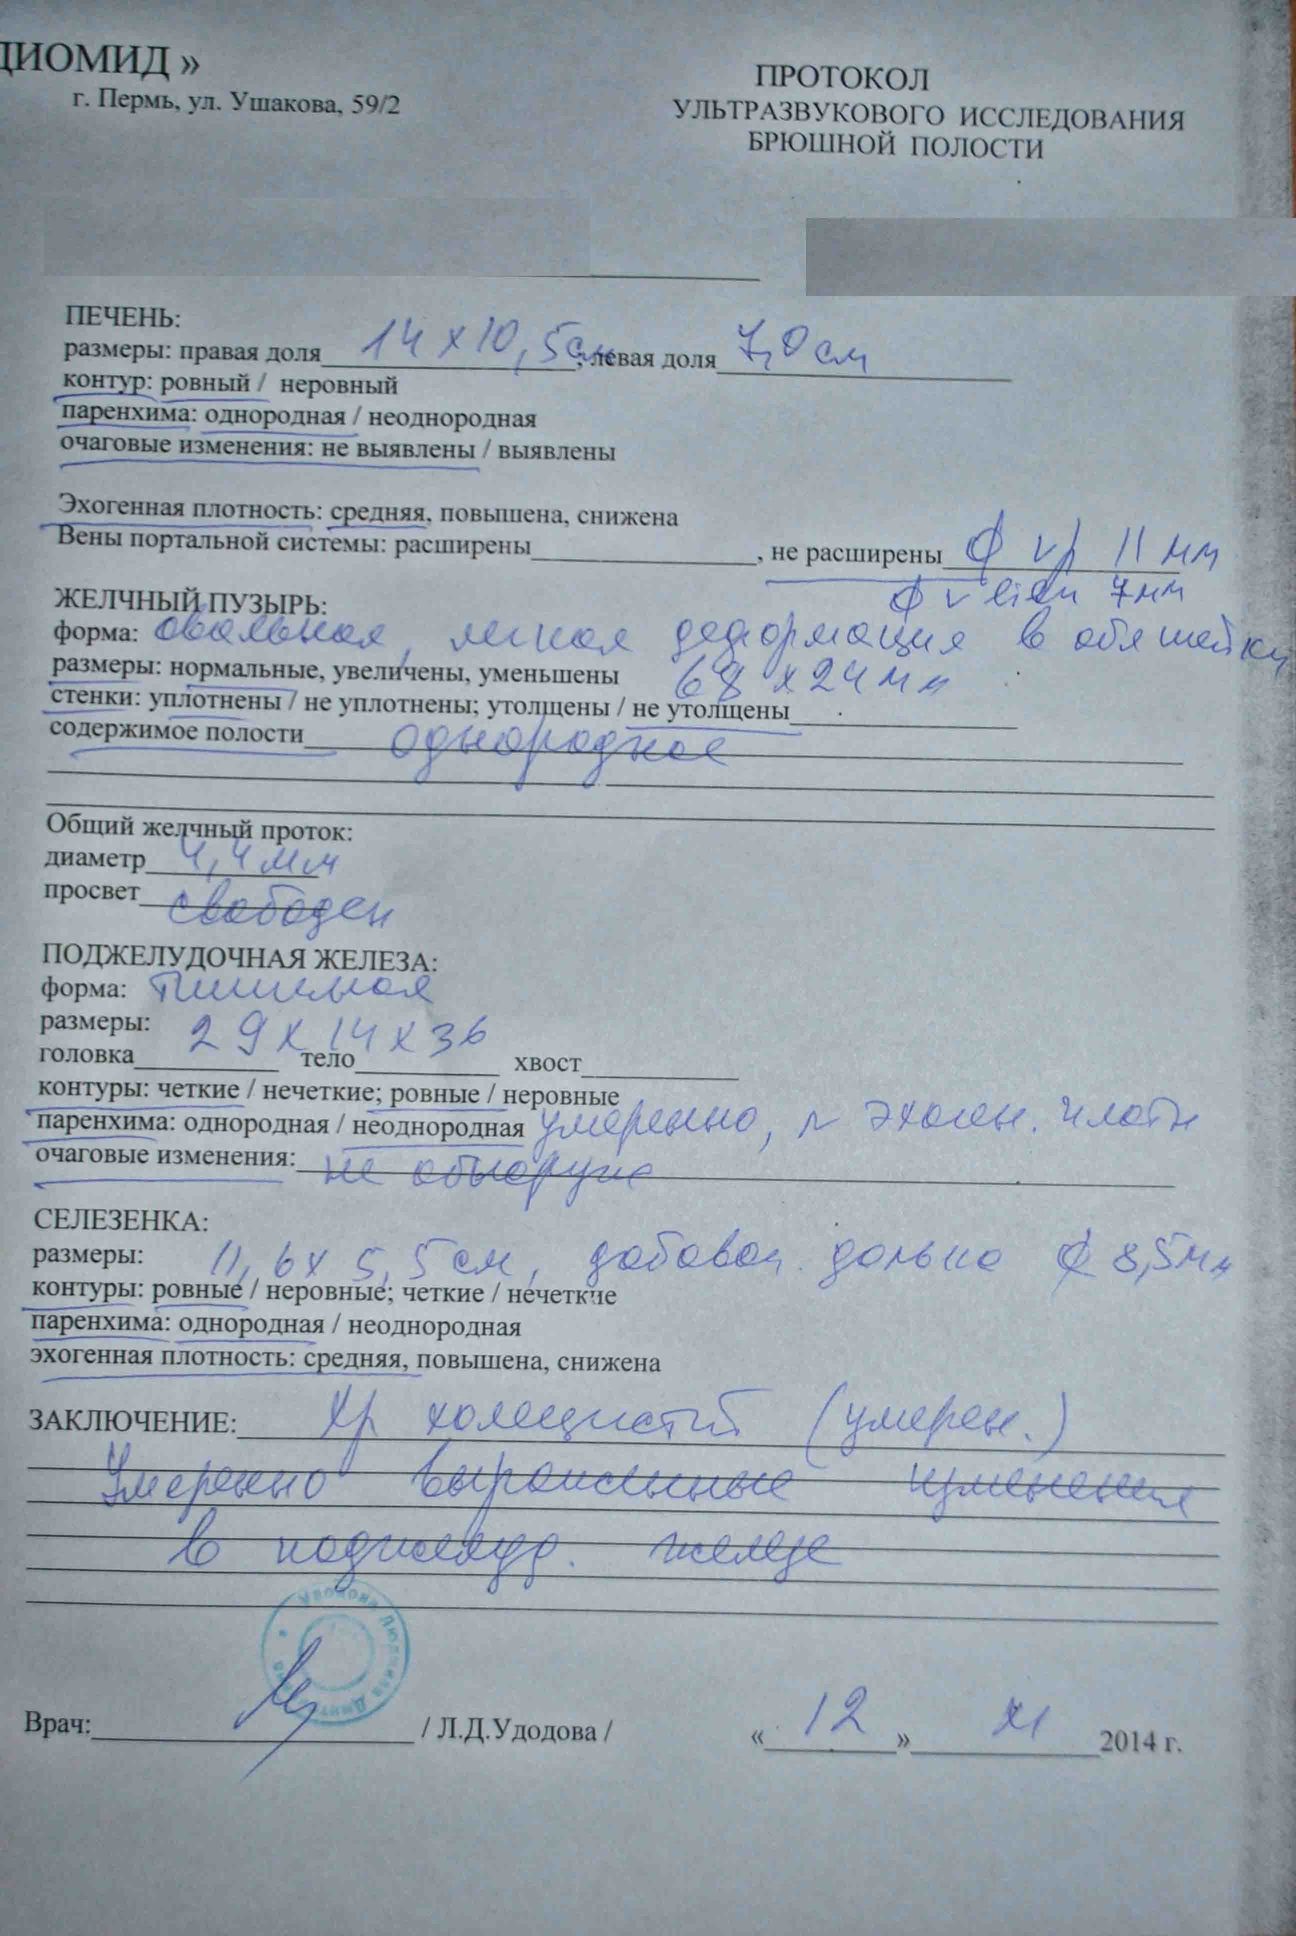 ДИОМИД »
г. Пермь, ул. Ушакова, 59/2
ПРОТОКОЛ
УЛЬТРАЗВУКОВОГО ИССЛЕДОВАНИЯ
БРЮШНОЙ ПОЛОСТИ
ПЕЧЕНЬ:
размеры: правая доля 14 х 10,5см, левая доля 7,0 см
контур: ровный / неровный
паренхима: однородная / неоднородная
очаговые изменения: не выявлены / выявлены
Эхогенная плотность: средняя, повышена, снижена
Вены портальной системы: расширены____, не расширены ф vp 11 мм
ф v lien 7мм
ЖЕЛЧНЫЙ ПУЗЫРЬ:
форма: овальная, легкая деформация в обл шейки
размеры: нормальные, увеличены, уменьшены 68 х 24 мм
стенки: уплотнены / не уплотнены; утолщены / не утолщены
содержимое полости однородное
Общий желчный проток:
диаметр 4,4 мм
просвет свободен
ПОДЖЕЛУДОЧНАЯ ЖЕЛЕЗА:
форма: типичная
размеры: 29 х 14 х 36
головка____ тело____ хвост____
контуры: четкие / нечеткие; ровные / неровные
паренхима: однородная / неоднородная умеренно, эхоген. плотн
очаговые изменения: не обнаруж
СЕЛЕЗЕНКА:
размеры: 11,6 х 5,5 см, добавоч. долька ф 8,5мм
контуры: ровные / неровные; четкие / нечеткие
паренхима: однородная / неоднородная
эхогенная плотность: средняя, повышена, снижена
ЗАКЛЮЧЕНИЕ: Хр холецистит (умерен.)
Умеренно выраженные изменения
в поджелуд. железе
Врач:____ / Л.Д.Удодова / « 12 » XI 2014 г.